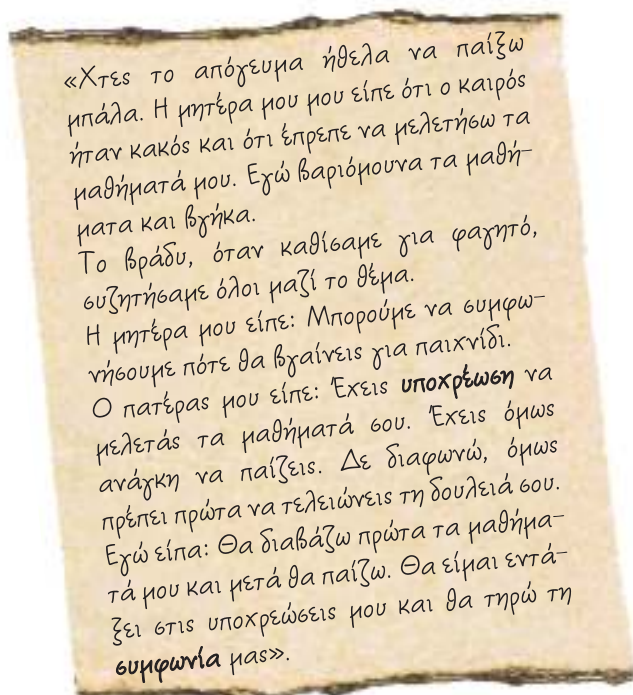 «Χτες το απόγευμα ήθελα να παίξω
μπάλα. Η μητέρα μου μου είπε ότι ο καιρός
ήταν κακός και ότι έπρεπε να μελετήσω τα
μαθήματά μου. Εγώ βαριόμουνα τα μαθή-
ματα και βγήκα.
Το βράδυ, όταν καθίσαμε για φαγητό,
συζητήσαμε όλοι μαζί το θέμα.
Η μητέρα μου είπε: Μπορούμε να συμφω-
νήσουμε πότε θα βγαίνεις για παιχνίδι.
Ο πατέρας μου είπε: Έχεις υποχρέωση να
μελετάς τα μαθήματά σου. Έχεις όμως
ανάγκη να παίζεις. Δε διαφωνώ, όμως
πρέπει πρώτα να τελειώνεις τη δουλειά σου.
Εγώ είπα: Θα διαβάζω πρώτα τα μαθήμα-
τά μου και μετά θα παίζω. Θα είμαι εντά-
ξει στις υποχρεώσεις μου και θα τηρώ τη
συμφωνία μας».